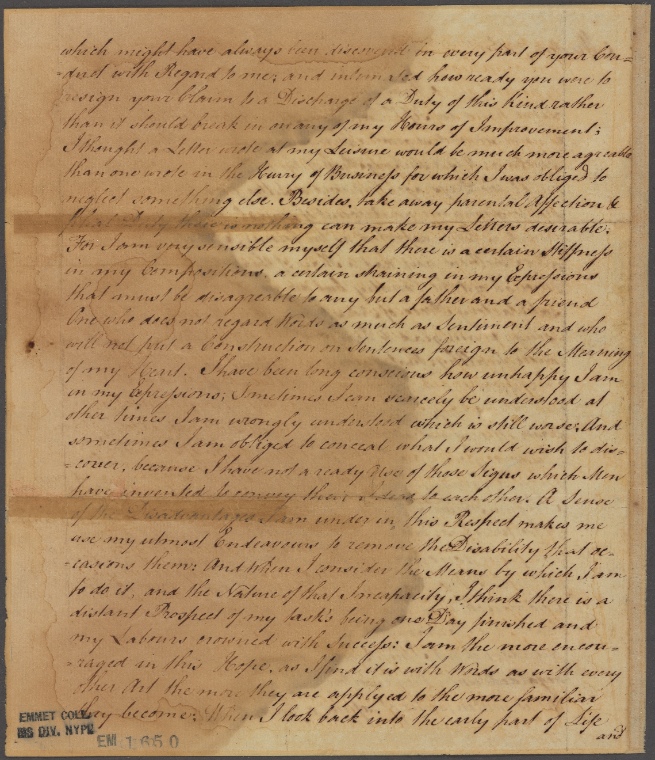 which might have always been discovered in every part of your Con=
=duct with Regard to me; and indeed how ready you were to
resign your Claim to a Discharge of a Duty of this kind rather
than it should break in on any of my Hours of Improvement;
I thought a Letter wrote at my Leisure would be much more agreeable
than one wrote in the Hurry of Business for which I was obliged to
neglect something else. Besides, take away parental Affection &
that Duty there is nothing can make my Letters desirable.
For I am very sensible myself that there is a certain Stiffness
in my Compositions, a certain straining in my Expressions
that must be disagreable to any but a father and a friend
One who does not regard Words as much as Sentiment and who
will not put a Construction on Sentences foreign to the Meaning
of my Heart. I have been long conscious how unhappy I am
in my Expressions; Sometimes I can scarcely be understood at
other times I am wrongly understood which is still worse; And
sometimes I am obliged to conceal what I would wish to dis=
=cover, because I have not a ready Use of those Signs which Men
have invented to convey their Ideas to each other. A Sense
of the Disadvantages I am under in this Respect makes me
use my utmost Endeavours to remove the Disability that oc=
=casions them: And when I consider the Means by which I am
to do it, and the Nature of that Incapacity, I think there is a
distant Prospect of my task's being one Day finished and
my Labours crowned with Success: I am the more encou=
=raged in this Hope, as I find it is with Words as with every
other Art the more they are applyed to the more familiar
they become. When I look back into the early part of Life
and
EMMET COLL.
MS DIV. NYPL
EM 1650